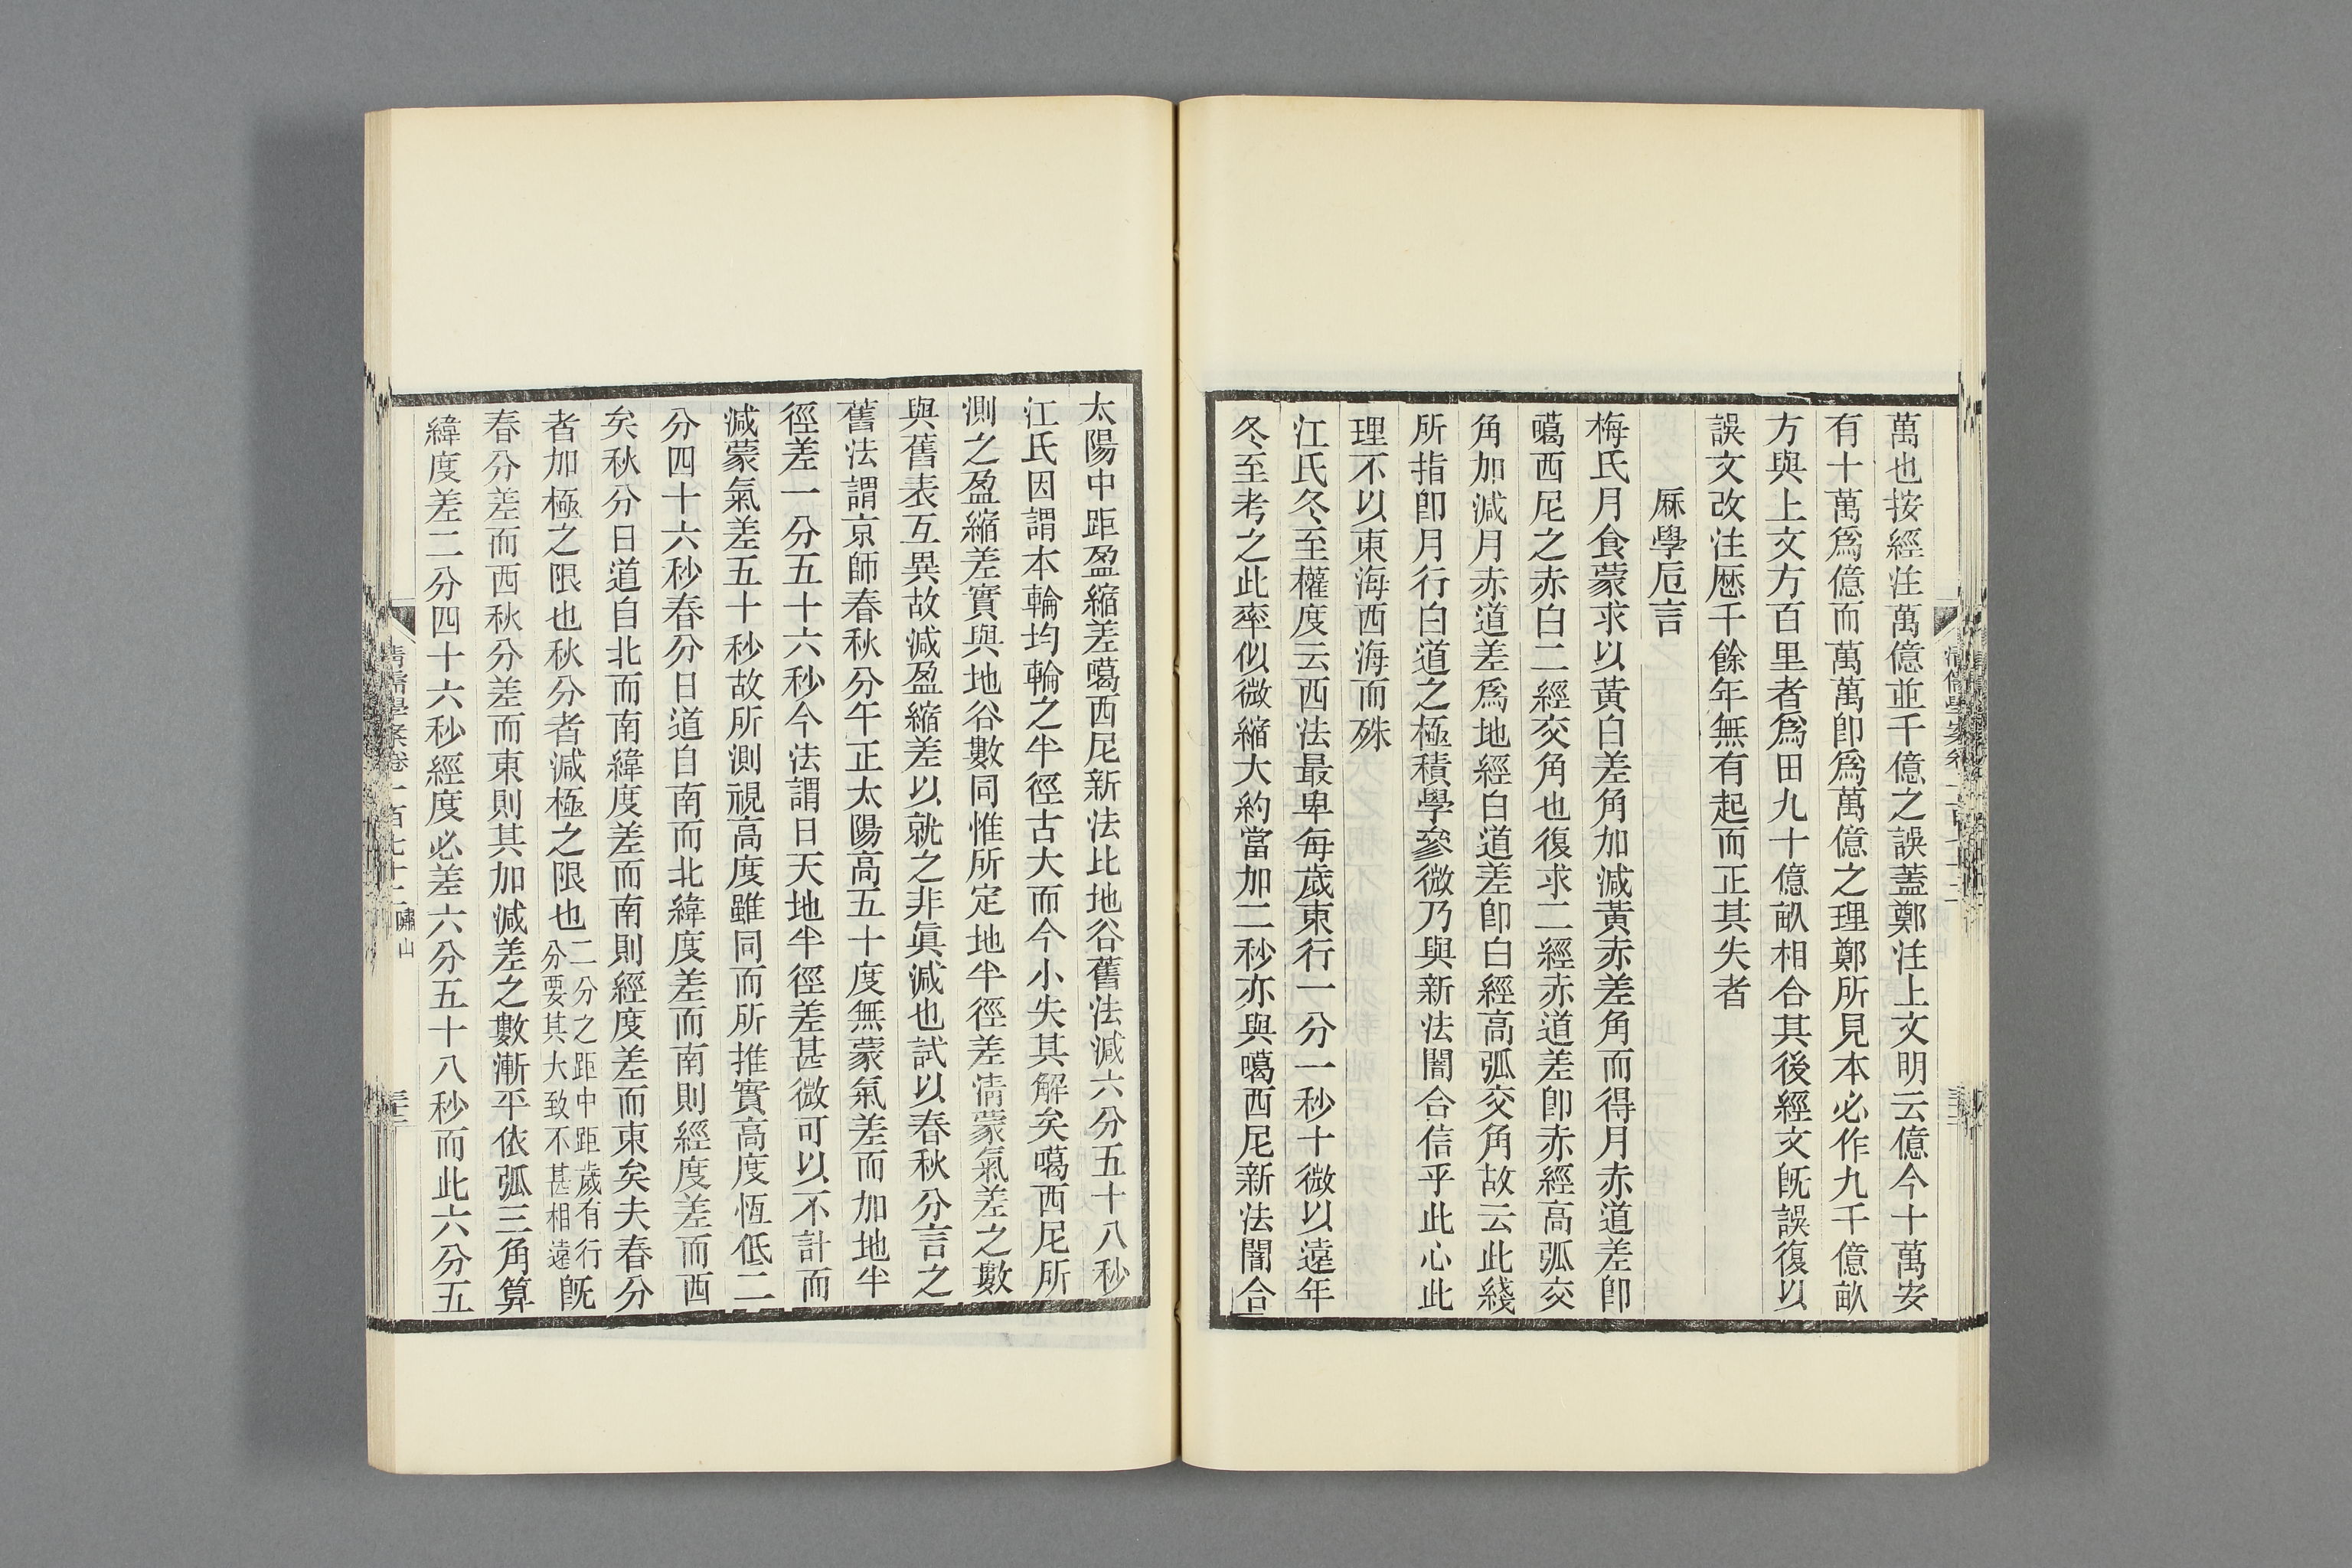 萬也按經注萬億並千億之誤蓋鄭注上文明云億今十萬安
有十萬爲億而萬萬卽爲萬億之理鄭所見本必作九千億畝
方與上文方百里者爲田九十億畝相合其後經文旣誤復以
誤文改注歷千餘年無有起而正其失者
厤學卮言
梅氏月食蒙求以黃白差角加減黃赤差角而得月赤道差卽
噶西尼之赤白二經交角也復求二經赤道差卽赤經高弧交
角加減月赤道差爲地經白道差卽白經高弧交角故云此綫
所指卽月行白道之極積學參微乃與新法闇合信乎此心此
理不以東海西海而殊
江氏冬至權度云西法最卑每歲東行一分一秒十微以遠年
冬至考之此率似微縮大約當加二秒亦與噶西尼新法闇合
太陽中距盈縮差噶西尼新法比地谷舊法減六分五十八秒
江氏因謂本輪均輪之半徑古大而今小失其解矣噶西尼所
測之盈縮差實與地谷數同惟所定地半徑差淸蒙氣差之數
與舊表互異故減盈縮差以就之非眞減也試以春秋分言之
舊法謂京師春秋分午正太陽高五十度無蒙氣差而加地半
徑差一分五十六秒今法謂日天地半徑差甚微可以不計而
減蒙氣差五十秒故所測視高度雖同而所推實高度恆低二
分四十六秒春分日道自南而北緯度差而南則經度差而西
矣秋分日道自北而南緯度差而南則經度差而東矣夫春分
者加極之限也秋分者減極之限也二分之距中距歲有行分要其大致不甚相遠旣
春分差而西秋分差而東則其加減差之數漸平依弧三角算
緯度差二分四十六秒經度必差六分五十八秒而此六分五
清儒學案卷一百七十二 嘯山 三三